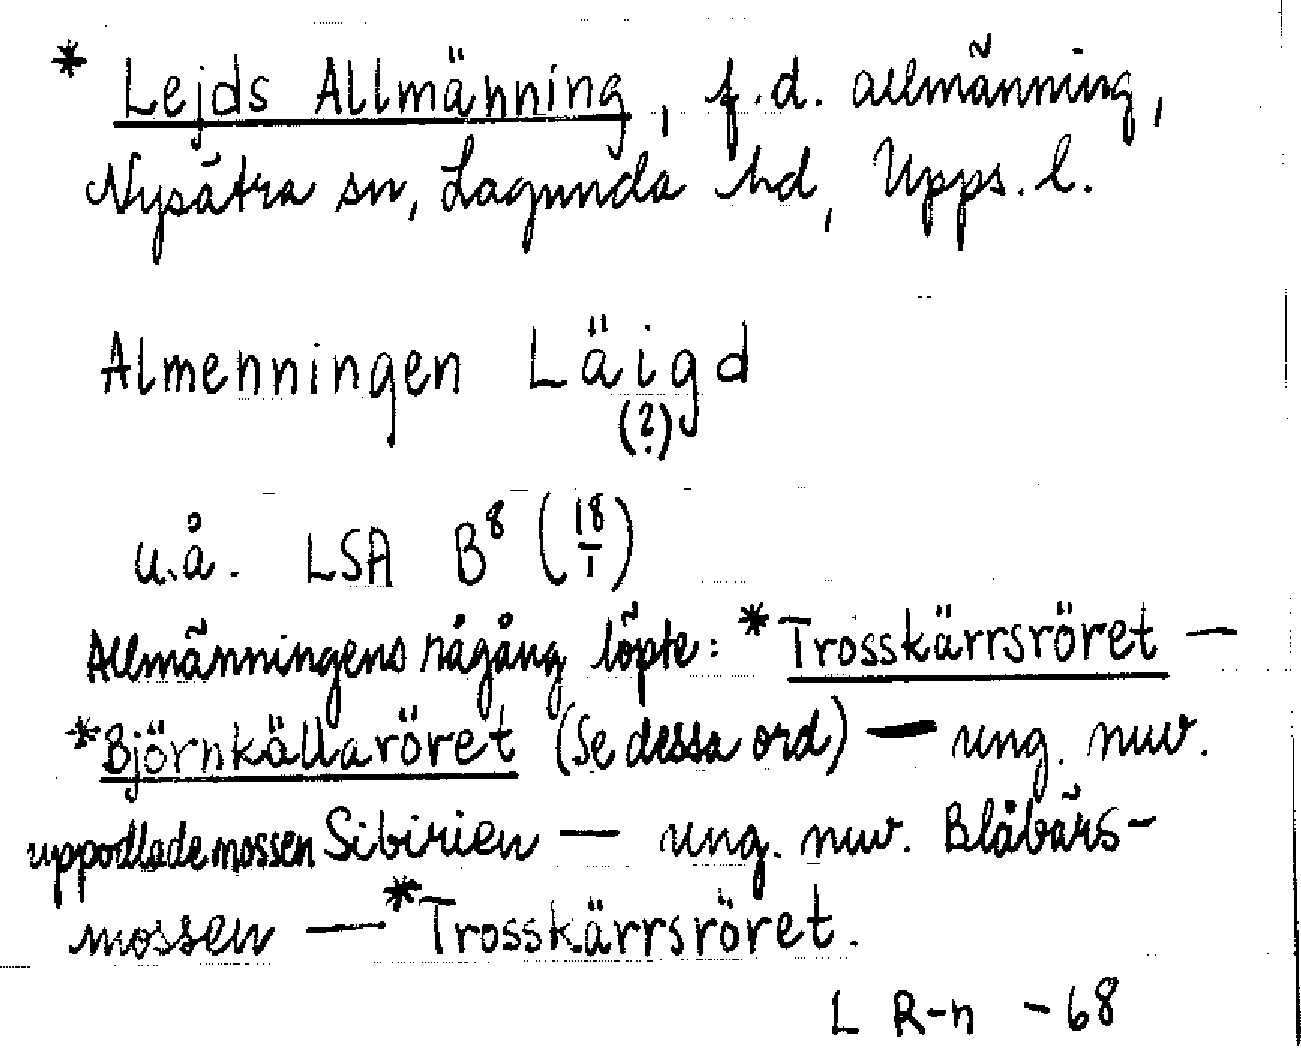 * Lejds Allmänning, f.d. allmänning,
Nysätra sn, Lagunda hd, Upps. l.
Almenningen Läigd
(?)
u.å. LSA B⁸ (18/1)
Allmänningens rågång löpte: *Trosskärrsröret —
*Björnkällaröret (Se dessa ord) — ung. nuv.
uppodlade mossen Sibirien — ung. nuv. Blåbärs-
mossen — *Trosskärrsröret.
L R-n -68